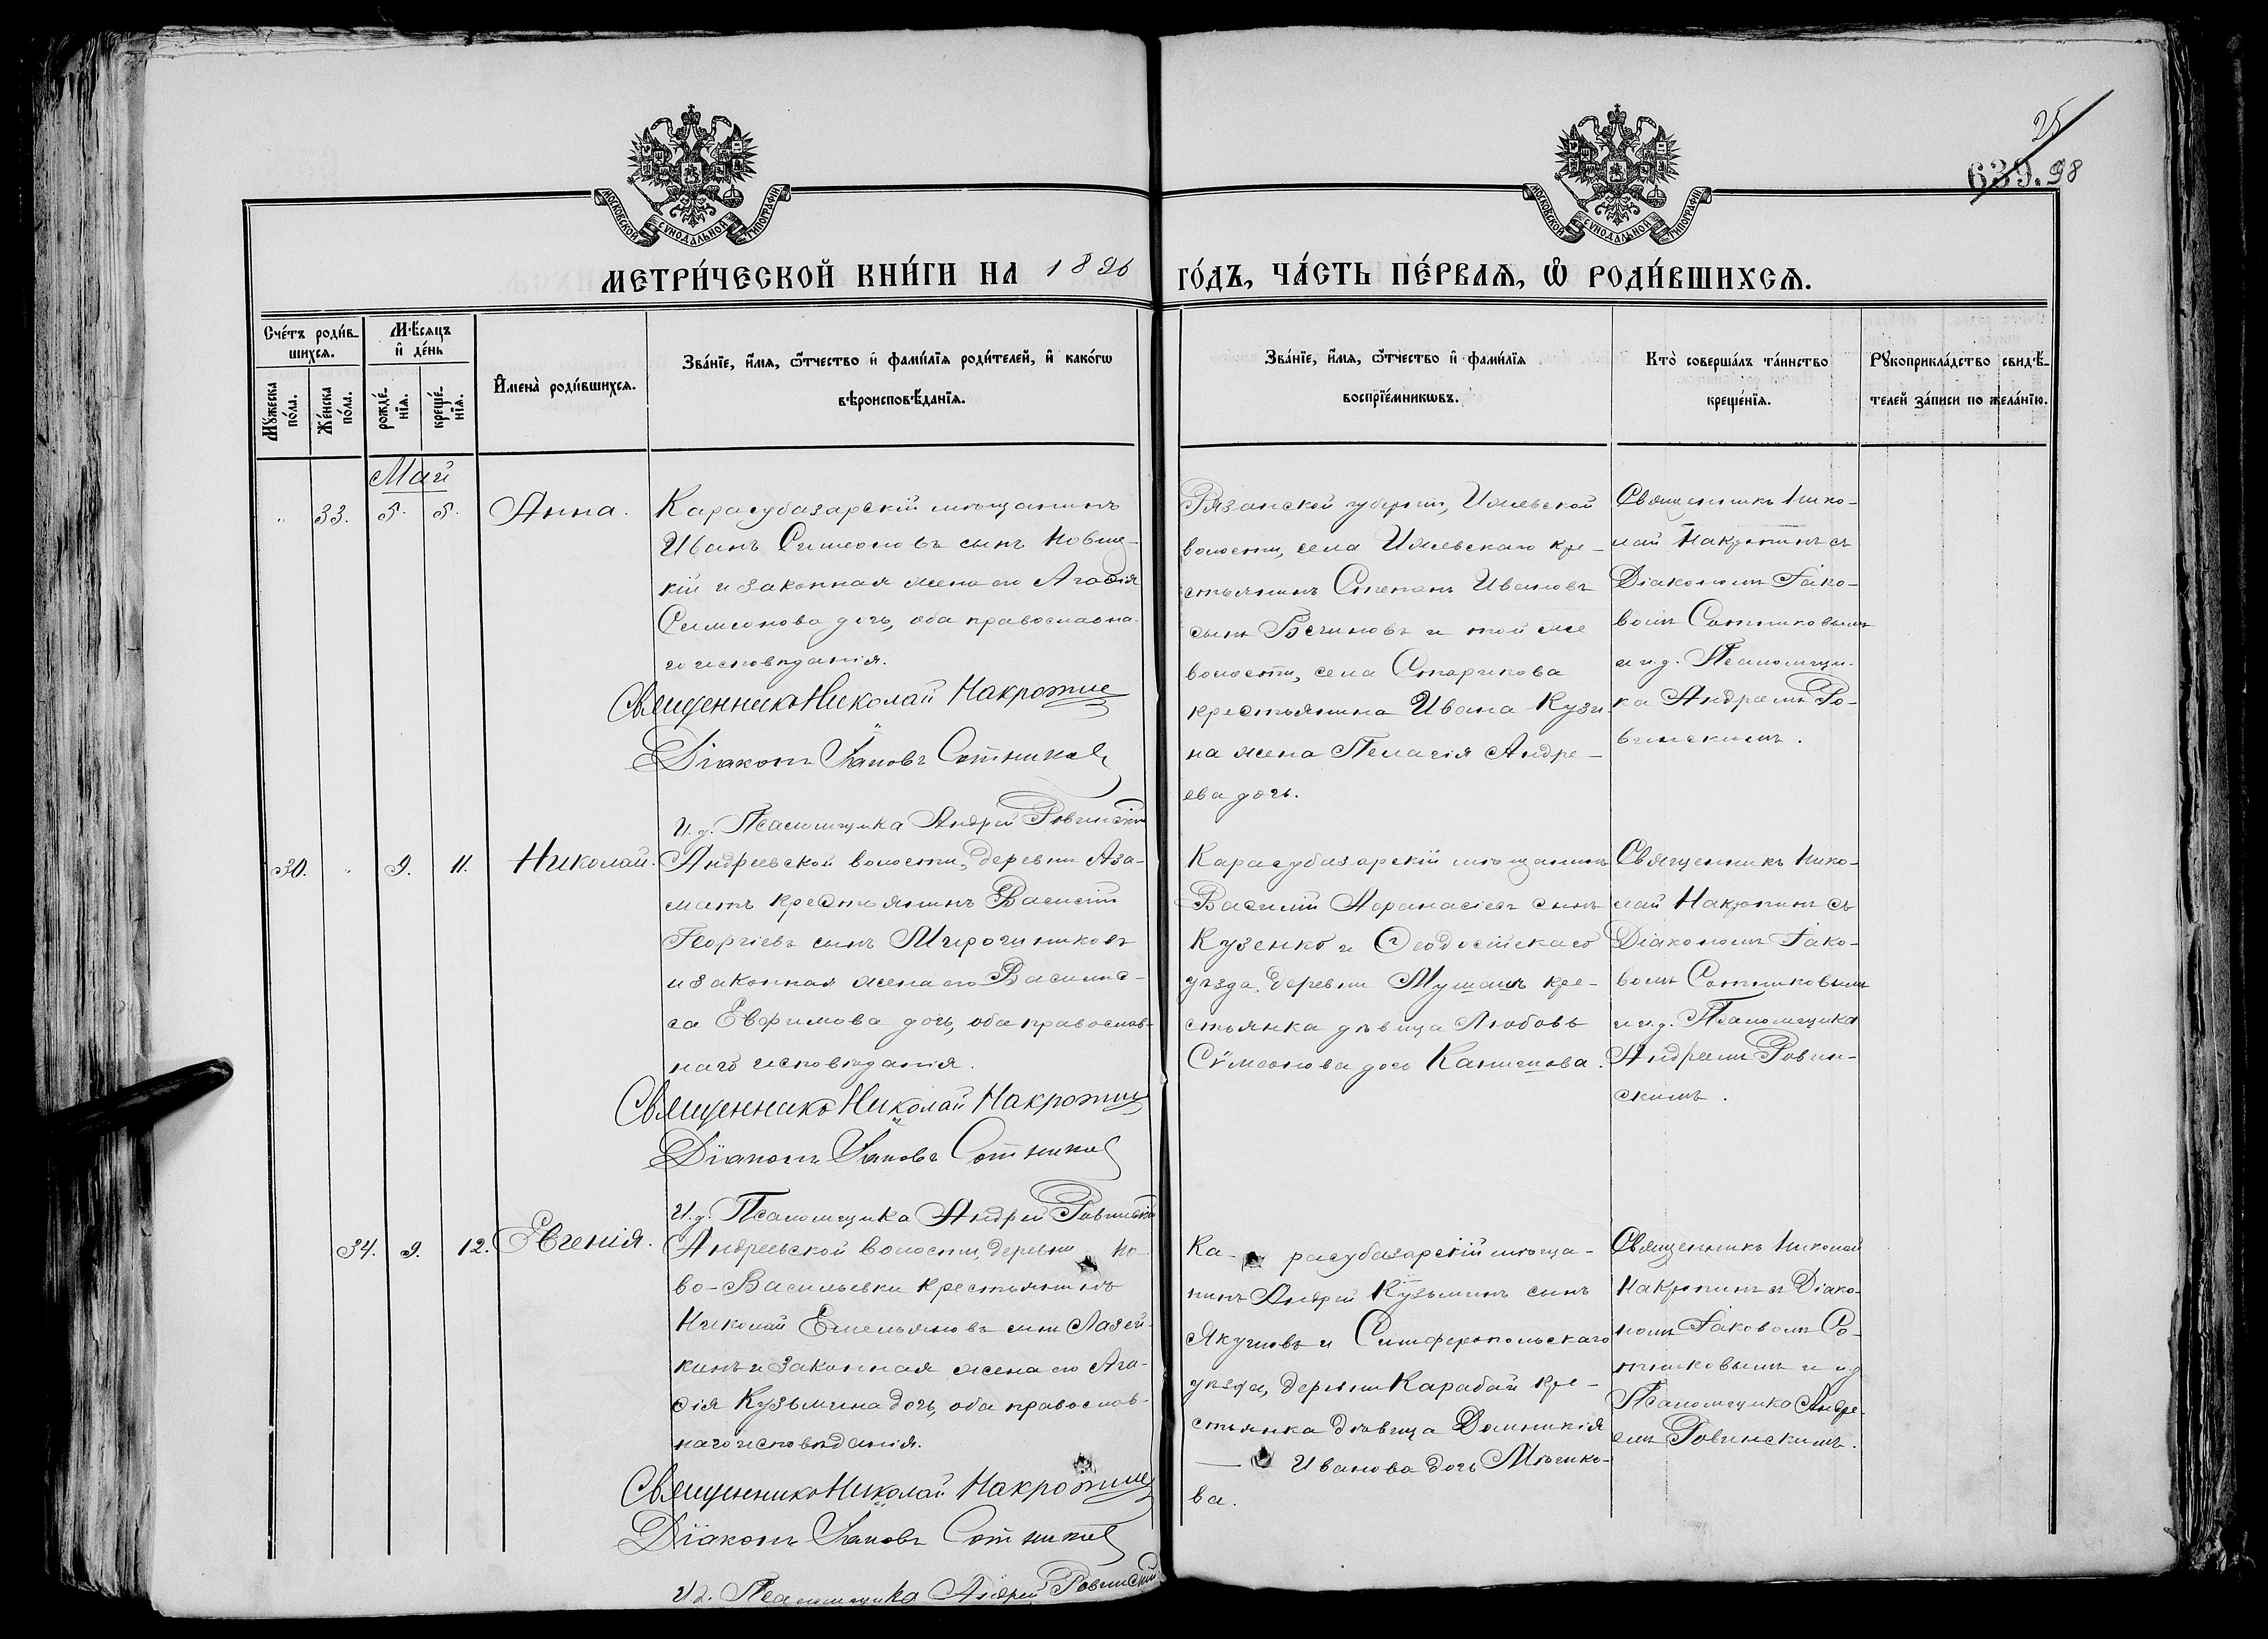 25
639. 98
МОСКОВСКОЙ СѴНОДАЛЬНОЙ ТИПОГРАФІИ
МОСКОВСКОЙ СѴНОДАЛЬНОЙ ТИПОГРАФІИ
МЕТРИ́ЧЕСКОЙ КНИ́ГИ НА 1896 ГО́ДЪ, ЧА́СТЬ ПЕ́РВАѦ, Ѡ҆ РОДИ́ВШИХСѦ.
Сче́тъ роди́в-
шихсѧ.
Мꙋ́жеска по́ла.
Же́нска по́ла.
Мѣ́сѧцъ
и҆ де́нь
рожде́-
нїѧ.
креще́-
нїѧ.
И҆мена̀ роди́вшихсѧ.
Зва́нїе, и҆́мѧ, ѻ҆́тчество и҆ фами́лїѧ роди́телей, и҆ како́гѡ
вѣроисповѣ́данїѧ.
Зва́нїе, и҆́мѧ, ѻ҆́тчество и҆ фами́лїѧ
воспрїе́мникѡвъ.
Кто̀ соверша́лъ та́инство
креще́нїѧ.
Рꙋкоприкла́дство свидѣ́-
телей за́писи по жела́нїю.
Май
„ 33. 5. 5. Анна.
Карасубазарскій мѣщанинъ
Иванъ Симеоновъ сынъ
кій и законная жена его Агафія
Симеонова дочь, оба православна-
го исповѣданія.
Священникъ Николай Макрот
Діаконъ Іаковъ Сотников
И. д. Псаломщика Андрей Ровинскій
Рязанской губерніи, Ижевской
волости, села Ижевскаго кре-
стьянинъ Степанъ Ивановъ
сынъ и той же
волости, села Старикова
крестьянина Ивана Кузи-
на жена Пелагія Андре-
ева дочь.
Священникъ Нико-
лай съ
Діакономъ Іако-
вомъ Сотниковымъ
и и. д. Псаломщи-
ка Андреемъ Ро-
винскимъ.
30. „ 9. 11. Николай.
Андреевской волости, деревни Аза-
матъ крестьянинъ Василій
Георгіевъ сынъ Мирошниковъ
и законная жена его Василис-
са Евфимова дочь, оба православ-
наго исповѣданія.
Священникъ Николай
Діаконъ Іаковъ Сотников
И. д. Псаломщика Андрей Ровинскій
Карасубазарскій мѣщанинъ
Василій Афанасіевъ сынъ
Кузенко и Ѳеодосійскаго
уѣзда, деревни Мушашъ кре-
стьянка дѣвица Любовь
Сѵмеонова дочь .
Священникъ Нико-
лай съ
Діакономъ Іако-
вомъ Сотниковымъ
и и. д. Псаломщика
Андреемъ Ровин-
скимъ.
34. 9. 12. Евгенія.
Андреевской волости, деревни Но-
во-Васильевки крестьянинъ
Николай Емельяновъ сынъ Лазей-
кинъ и законная жена его Ага-
фія Кузьмина дочь, оба православ-
наго исповѣданія.
Священникъ Николай
Діаконъ Іаковъ Сотников
И. д. Псаломщика Андрей Ровинскій
Ка- расубазарскій мѣща-
нинъ Андрей Кузьминъ сынъ
Якушовъ и Симферопольскаго
уѣзда, деревни Карабай кре-
стьянка дѣвица Домникія
— Иванова дочь
ва.
Священникъ Николай
съ Діако-
номъ Іаковомъ Со-
тниковымъ и и. д.
Псаломщика Андре-
емъ Ровинскимъ.